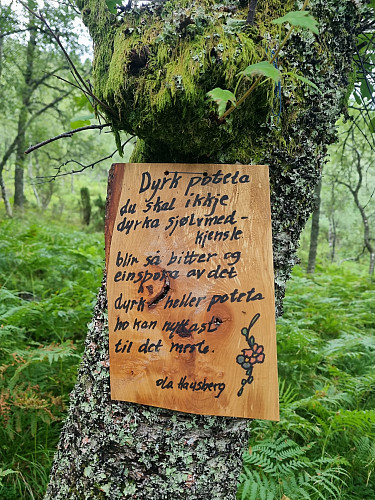 Dyrk poteta
du skal ikkje
dyrka sjølvmed-
kjensle
blir så bitter og
einspora av det
dyrk heller poteta
ho kan nyttast
til det meste.
Ola Hausberg